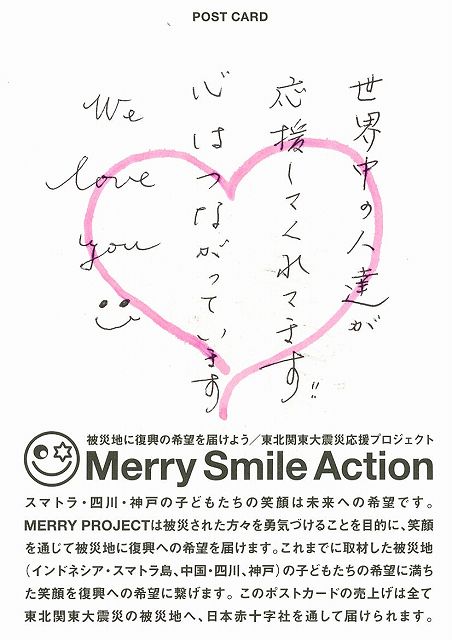 POST CARD
世界中の人達が
応援してくれてます!!
心はつながっています
We
love
you
被災地に復興の希望を届けよう/東北関東大震災応援プロジェクト
Merry Smile Action
スマトラ・四川・神戸の子どもたちの笑顔は未来への希望です。
MERRY PROJECTは被災された方々を勇気づけることを目的に、笑顔
を通じて被災地に復興への希望を届けます。これまでに取材した被災地
(インドネシア・スマトラ島、中国・四川、神戸)の子どもたちの希望に満ち
た笑顔を復興への希望に繋げます。このポストカードの売上げは全て
東北関東大震災の被災地へ、日本赤十字社を通して届けられます。